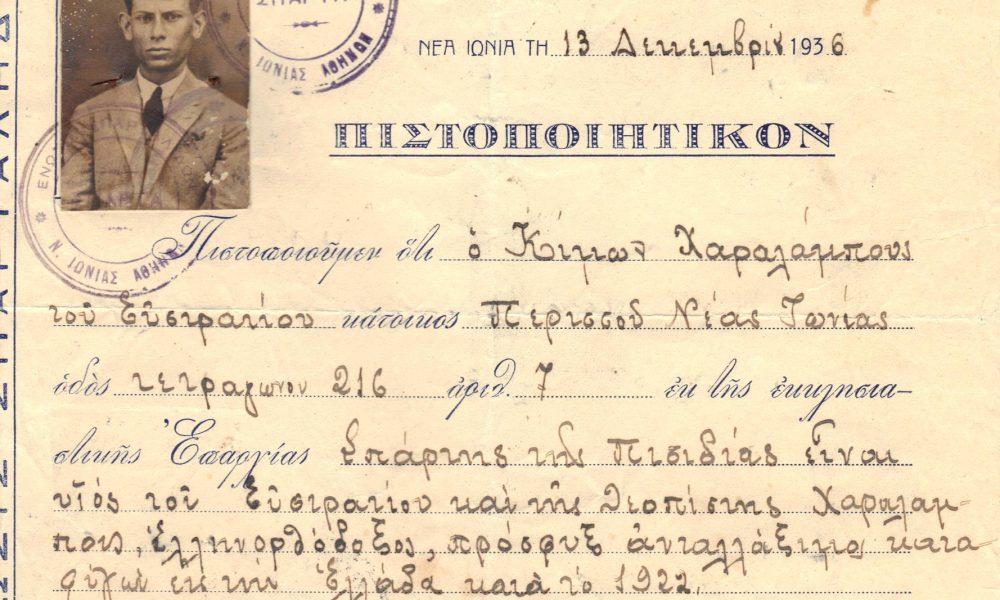 ΣΠΑΡΤΗ
ΙΩΝΙΑΣ ΑΘΗΝΩΝ
ΝΕΑ ΙΩΝΙΑ ΤΗ 13 Δεκεμβρίου 1936
ΠΙΣΤΟΠΟΙΗΤΙΚΟΝ
Ν. ΙΩΝΙΑΣ ΑΘΗΝΩΝ
Πιστοποιοῦμεν ὅτι ὁ Κίμων Χαραλάμπους
τοῦ Εὐστρατίου κάτοικος Περισσοῦ Νέας Ἰωνίας
ὁδὸς τετραγώνου 216 ἀριθ. 7 ἐκ τῆς ἐκκλησια-
στικῆς Ἐπαρχίας Σπάρτης τῆς Πισιδίας εἶναι
υἱός τοῦ Εὐστρατίου καὶ τῆς Θεοπίστης Χαραλαμ-
πους, ἑλληνορθόδοξος, πρόσφυξ ἀνταλλάξιμος κατα
φυγὼν εἰς τὴν Ἑλλάδα κατὰ τὸ 1922.